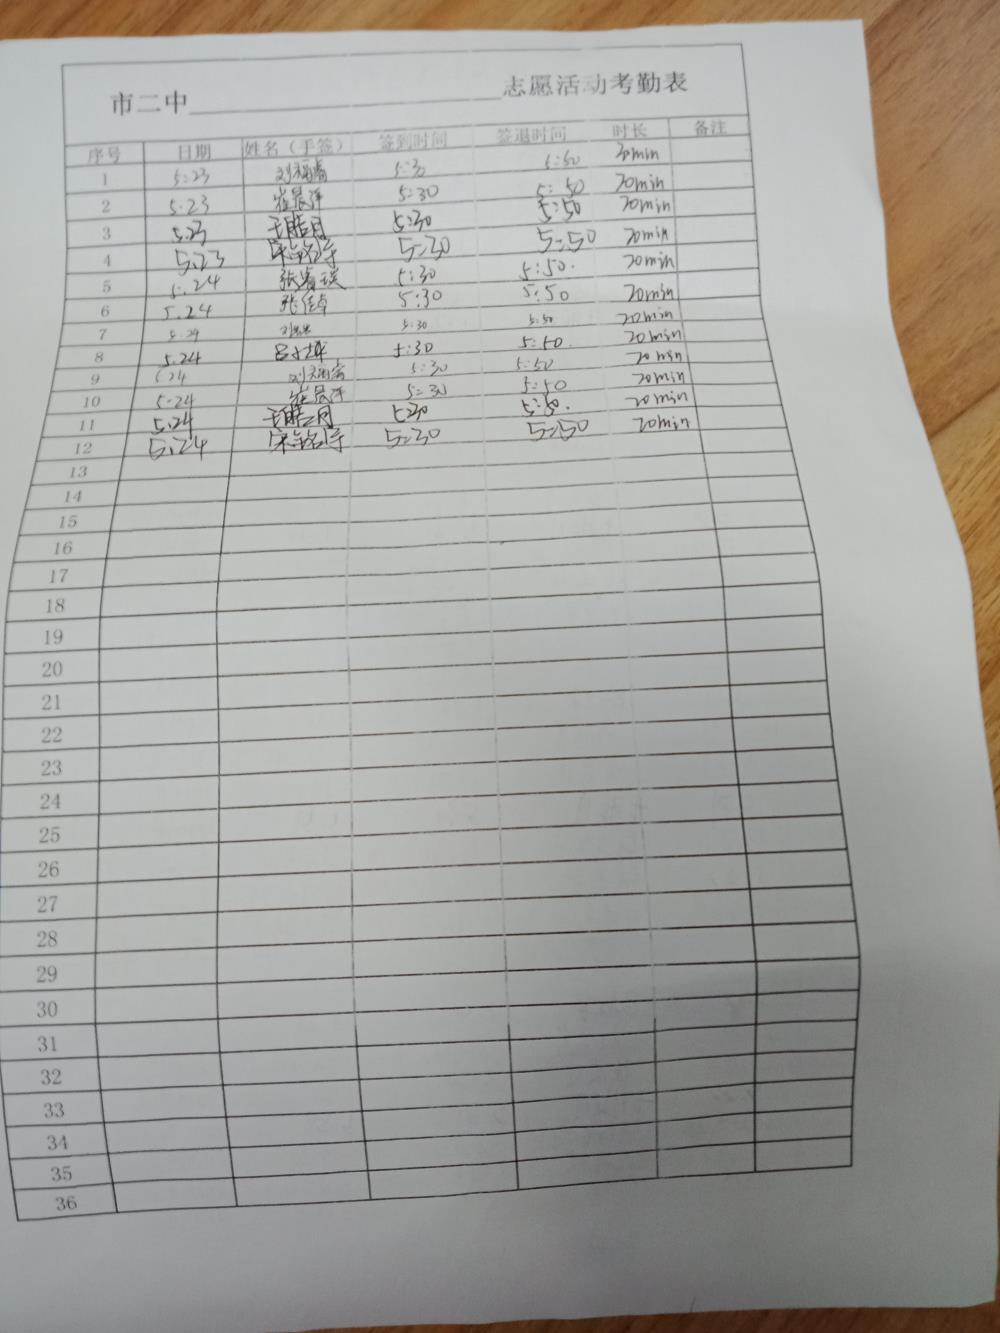 市二中____________________志愿活动考勤表
序号 日期 姓名（手签） 签到时间 签退时间 时长 备注
1 5.23 5:30 5:50 20min
2 5.23 崔晨萍 5:30 5:50 20min
3 5.23 5:30 5:50 20min
4 5.23 宋铭宇 5:30 5:50 20min
5 5.24 5:30 5:50. 20min
6 5.24 张倬 5:30 5:50 20min
7 5.24 5:30 5:50 20min
8 5.24 5:30 5:50. 20min
9 5.24 5:30 5:50 20min
10 5.24 崔晨萍 5:30 5:50 20min
11 5.24 5:30 5:50. 20min
12 5.24 宋铭宇 5:30 5:50 20min
13
14
15
16
17
18
19
20
21
22
23
24
25
26
27
28
29
30
31
32
33
34
35
36